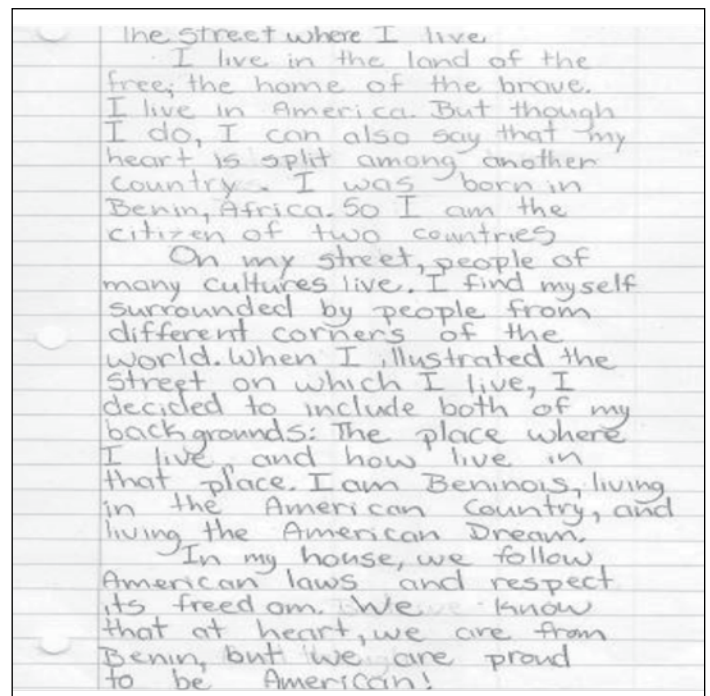 The street where I live
I live in the land of the
free, the home of the brave.
I live in America. But though
I do, I can also say that my
heart is split among another
Country. I was born in
Benin, Africa. So I am the
citizen of two countries
On my street, people of
many cultures live. I find myself
surrounded by people from
different corners of the
world. When I illustrated the
Street on which I live, I
decided to include both of my
backgrounds: The place where
I live, and how live in
that place. I am Beninois, living
in the American Country, and
living the American Dream.
In my house, we follow
American laws and respect
its freedom. We know
that at heart, we are from
Benin, but we are proud
to be American!